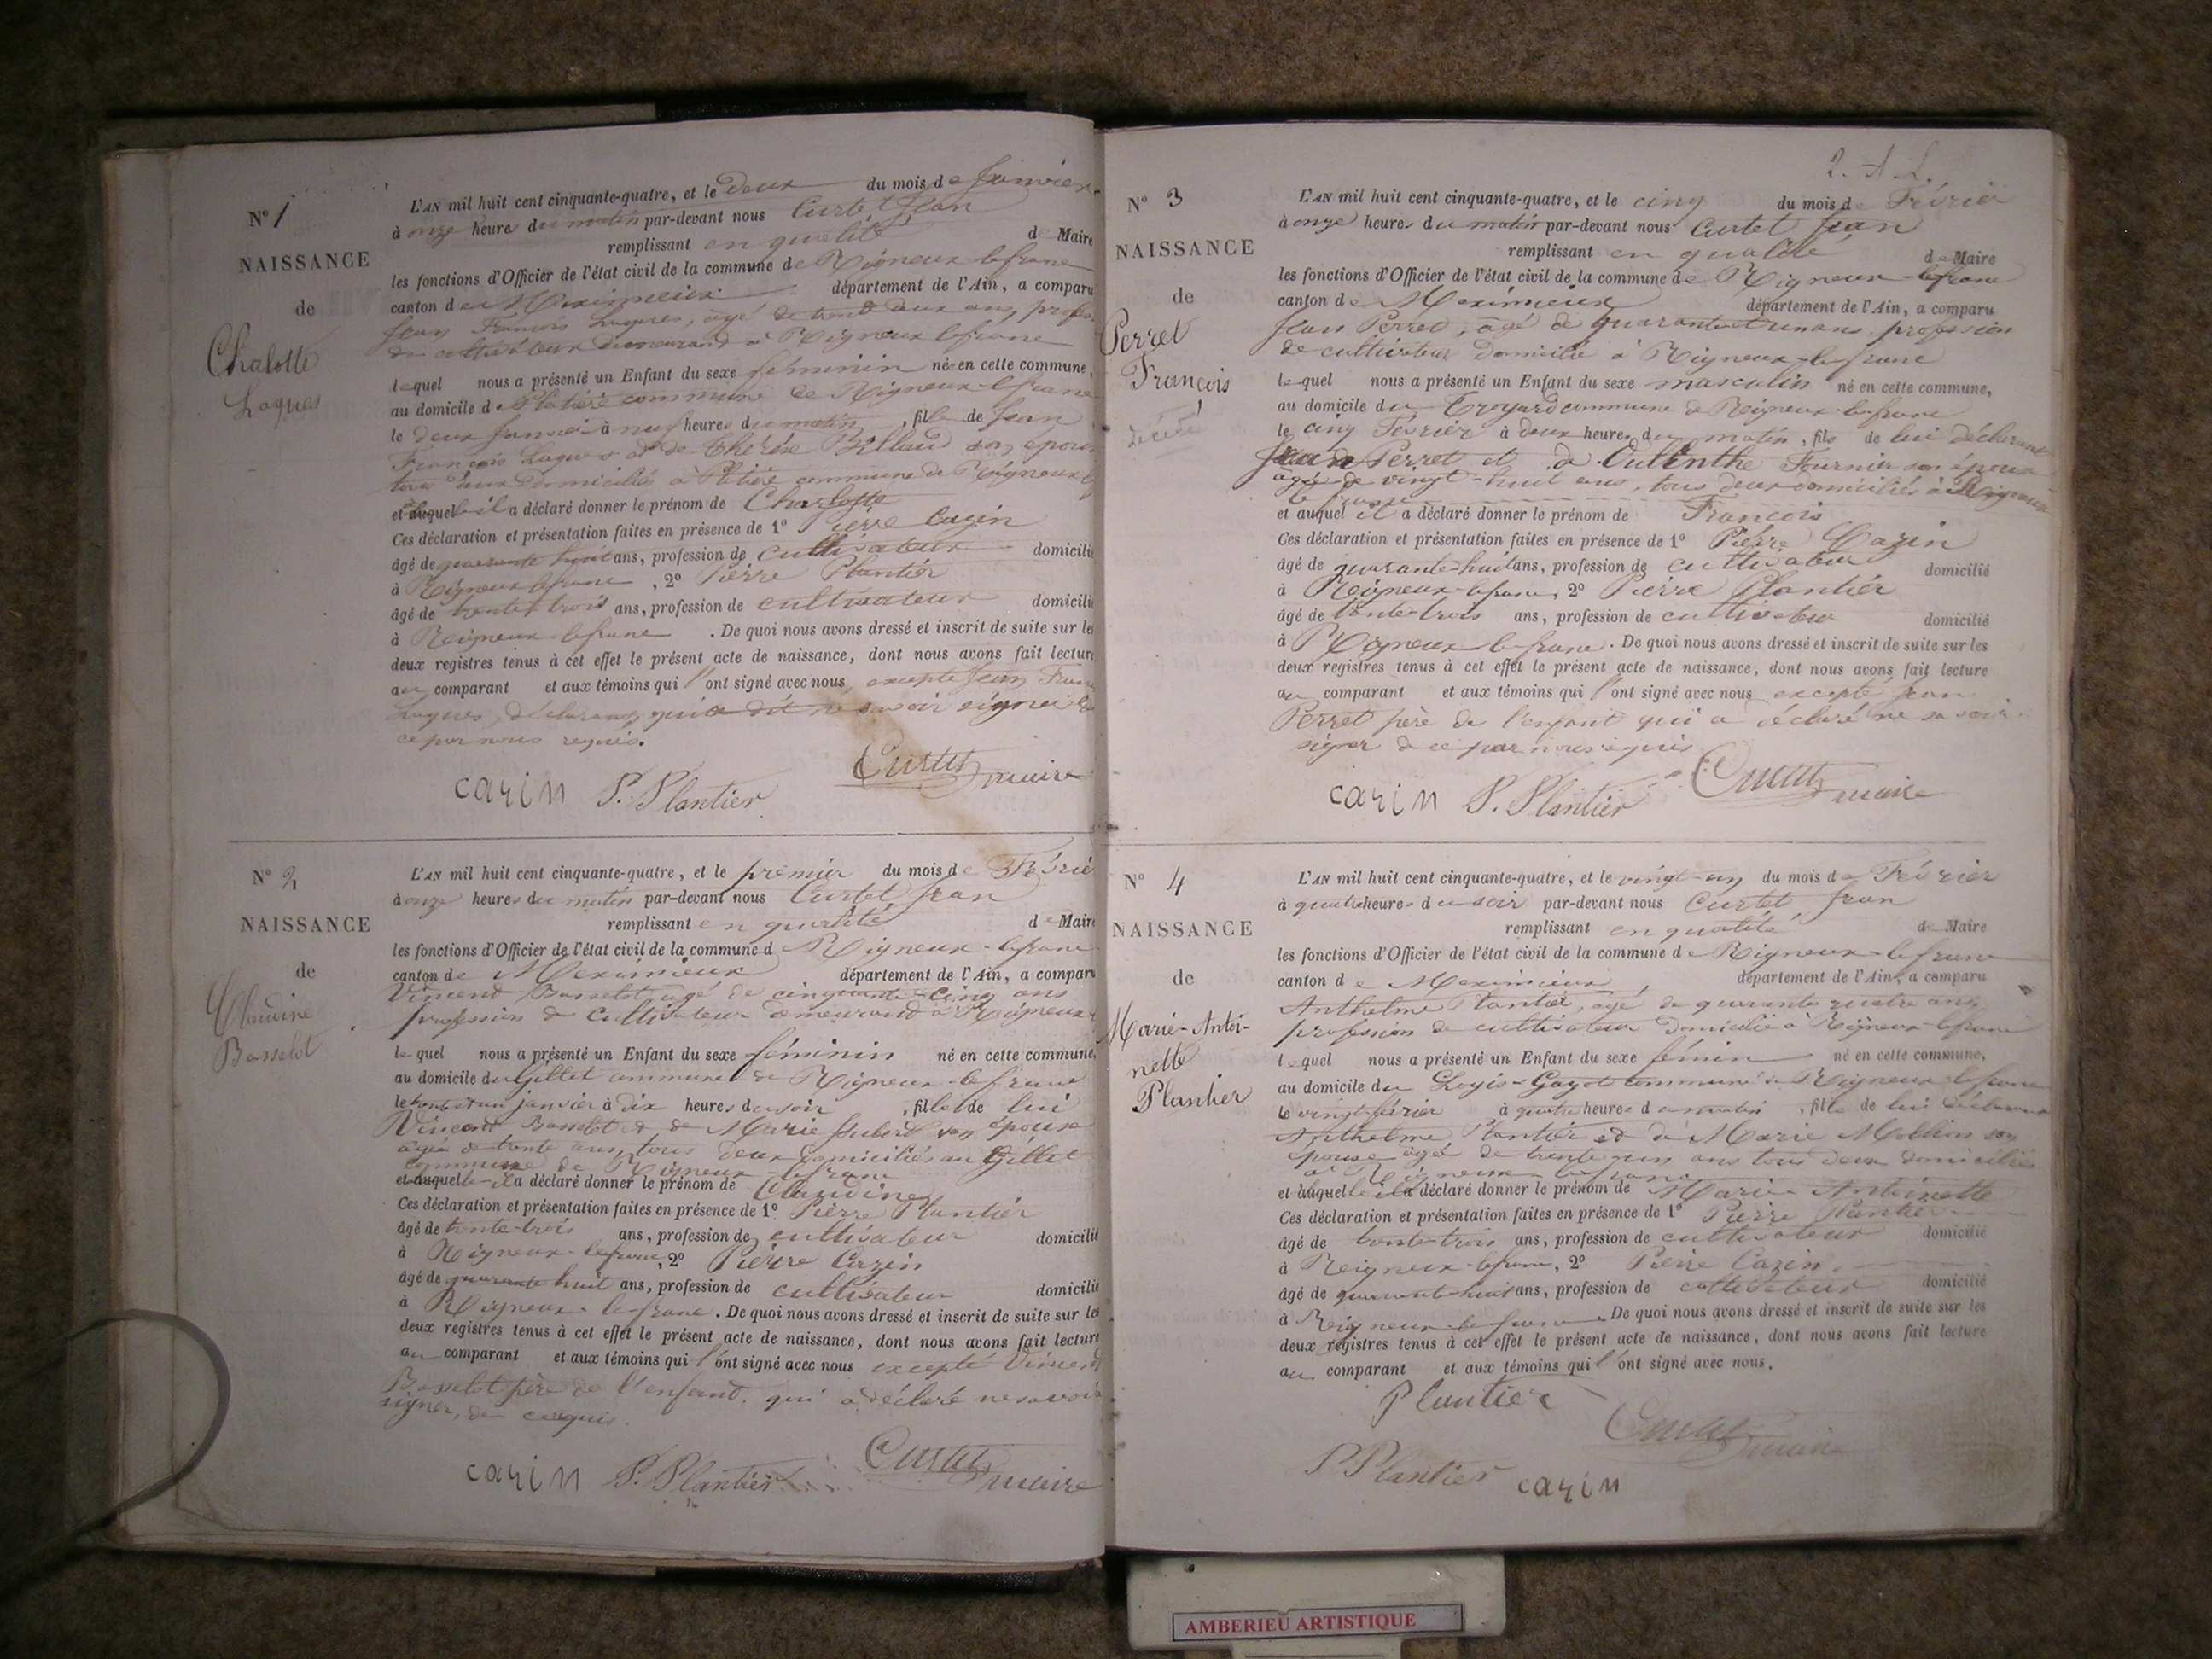 N° 1
NAISSANCE
de
Chalotte
Laques
L'AN mil huit cent cinquante-quatre, et le deux du mois de Janvier
à onze heures du matin par-devant nous Curtet Jean
remplissant en qualité de Maire
les fonctions d'Officier de l'état civil de la commune de Rigneux-le franc
canton de Meximieux département de l'Ain, a comparu
Jean François Laques, âgé de trente deux ans, profes
de cultivateur demeurant à Rigneux le franc
lequel nous a présenté un Enfant du sexe féminin né en cette commune,
au domicile de Platière commune de Rigneux-le franc
le deux janvier à neuf heures du matin, fille de Jean
François Laques et de Thérèse Billaud son épou
tous deux domiciliés à commune de Rigneux
et auquel il a déclaré donner le prénom de Charlotte
Ces déclaration et présentation faites en présence de 1° Pierre Cazin
âgé de quarante huit ans, profession de cultivateur domicilié
à Rigneux le franc, 2° Pierre Plantier
âgé de trente-trois ans, profession de cultivateur domicilié
à Rigneux-le franc. De quoi nous avons dressé et inscrit de suite sur les
deux registres tenus à cet effet le présent acte de naissance, dont nous avons fait lecture
au comparant et aux témoins qui l'ont signé avec nous, excepté Jean Fran
Laques, déclarant, qui a dit ne savoir signer de
ce par nous requis.
cazin P. Plantier Curtet maire
N° 2
NAISSANCE
de
Claudine
Bosselot
L'AN mil huit cent cinquante-quatre, et le premier du mois de Février
à onze heures du matin par-devant nous Curtet Jean
remplissant en qualité de Maire
les fonctions d'Officier de l'état civil de la commune de Rigneux-le franc
canton de Meximieux département de l'Ain, a comparu
Vincent Bosselot agé de cinquante-cinq ans
profession de cultivateur demeurant à Rigneux
lequel nous a présenté un Enfant du sexe féminin né en cette commune,
au domicile du Gillet commune de Rigneux-le franc
le trente et un janvier à dix heures du soir, fille de lui
Vincent Bosselot et de Marie Jubert son épouse
agée de trente ans, tous deux domiciliés au Gillet
commune de Rigneux-le franc
et auquel il a déclaré donner le prénom de Claudine
Ces déclaration et présentation faites en présence de 1° Pierre Plantier
âgé de trente-trois ans, profession de cultivateur domicilié
à Rigneux-le franc, 2° Pierre Cazin
âgé de quarante huit ans, profession de cultivateur domicilié
à Rigneux-le franc. De quoi nous avons dressé et inscrit de suite sur les
deux registres tenus à cet effet le présent acte de naissance, dont nous avons fait lecture
au comparant et aux témoins qui l'ont signé avec nous excepté Vincent
Bosselot père de l'enfant, qui a déclaré ne savoir
signer, de ce requis.
cazin P. Plantier Curtet maire
2.
N° 3
NAISSANCE
de
Perret
François
décédé
L'AN mil huit cent cinquante-quatre, et le cinq du mois de Février
à onze heures du matin par-devant nous Curtet Jean
remplissant en qualité de Maire
les fonctions d'Officier de l'état civil de la commune de Rigneux-le franc
canton de Meximieux département de l'Ain, a comparu
Jean Perret, âgé de quarante et un ans, profession
de cultivateur domicilié à Rigneux-le franc
lequel nous a présenté un Enfant du sexe masculin né en cette commune,
au domicile du commune de Rigneux-le franc
le cinq Février à deux heures du matin, fils de lui déclarant
Jean Perret et de Fournier son épouse
agée de vingt-huit ans, tous deux domiciliés à Rigneux
le franc
et auquel il a déclaré donner le prénom de François
Ces déclaration et présentation faites en présence de 1° Pierre Cazin
âgé de quarante-huit ans, profession de cultivateur domicilié
à Rigneux-le franc, 2° Pierre Plantier
âgé de trente-trois ans, profession de cultivateur domicilié
à Rigneux-le franc. De quoi nous avons dressé et inscrit de suite sur les
deux registres tenus à cet effet le présent acte de naissance, dont nous avons fait lecture
au comparant et aux témoins qui l'ont signé avec nous excepté Jean
Perret père de l'enfant qui a déclaré ne savoir
signer de ce par nous requis
cazin P. Plantier Curtet maire
N° 4
NAISSANCE
de
Marie-Antoi-
nette
Plantier
L'AN mil huit cent cinquante-quatre, et le vingt-un du mois de Février
à quatre heures du soir par-devant nous Curtet Jean
remplissant en qualité de Maire
les fonctions d'Officier de l'état civil de la commune de Rigneux-le franc
canton de Meximieux, département de l'Ain, a comparu
Anthelme Plantier, agé de quarante quatre ans,
profession de cultivateur domicilié à Rigneux-le franc
lequel nous a présenté un Enfant du sexe fémin né en cette commune,
au domicile du Logis-Gayot commune de Rigneux-le franc
le vingt février à quatre heures du matin, fille de lui déclarant
Anthelme Plantier et de Marie Mollion son
épouse agé de trente un ans tous deux domiciliés
à Rigneux le franc
et auquel il a déclaré donner le prénom de Marie Antoinette
Ces déclaration et présentation faites en présence de 1° Pierre Plantier
âgé de trente-trois ans, profession de cultivateur domicilié
à Rigneux-le franc, 2° Pierre Cazin
âgé de quarante-huit ans, profession de cultivateur domicilié
à Rigneux-le franc. De quoi nous avons dressé et inscrit de suite sur les
deux registres tenus à cet effet le présent acte de naissance, dont nous avons fait lecture
au comparant et aux témoins qui l'ont signé avec nous.
Plantier
Curtet maire
P Plantier cazin
AMBERIEU ARTISTIQUE